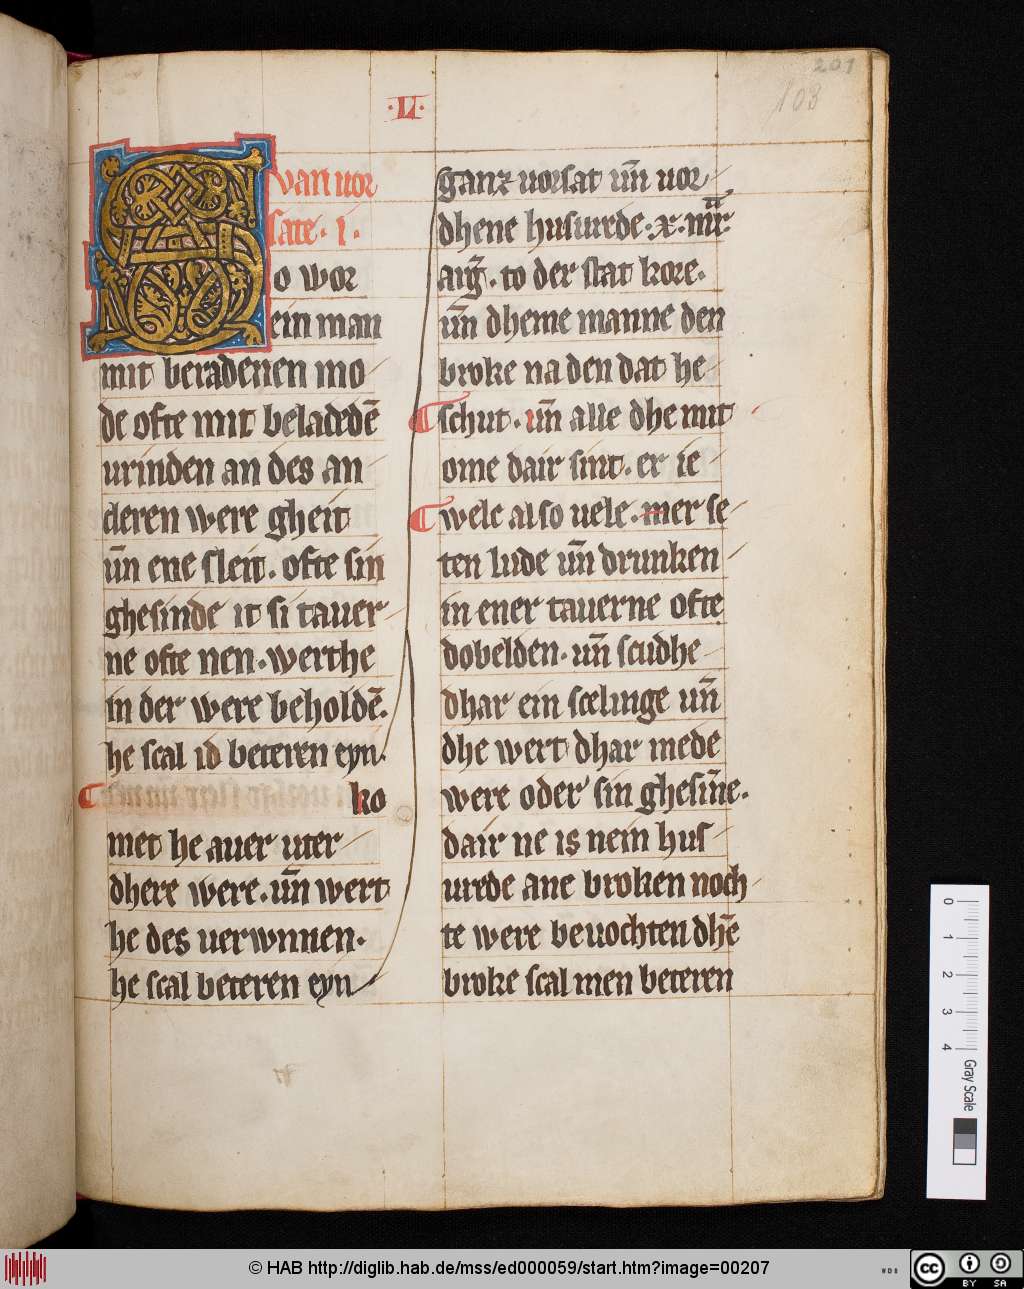 201
103
·LI·
van uor
sate· i·
So wor
ein man
mit beradenen mo
de ofte mit beladedē
urinden an des an
deren were gheit
un̄ ene sleit. ofte sin
ghesinde it si tauer
ne ofte nen. werthe
in der were beholdē.
he scal id beteren eyn.
ko
met he auer uter
dhere were. un̄ wert
he des uerwnnen.
he scal beteren eyn
ganz uorsat un̄ uor
dhene husurede. x. mr̄.
to der stat kore.
un̄ dheme manne den
broke na den dat he
schut. un̄ alle dhe mit
ome dair sint. er ie
welc also uele. mer se
ten lude un̄ drunken
in ener tauerne ofte
dobelden. un̄ scudhe
dhar ein scelinge un̄
dhe wert dhar mede
were oder sin ghesin̄e.
dair ne is nein hus
urede ane broken noch
te were beuochten dhē
broke scal men beteren
0 1 2 3 4
Gray Scale
© HAB http://diglib.hab.de/mss/ed000059/start.htm?image=00207
WDB
cc BY SA